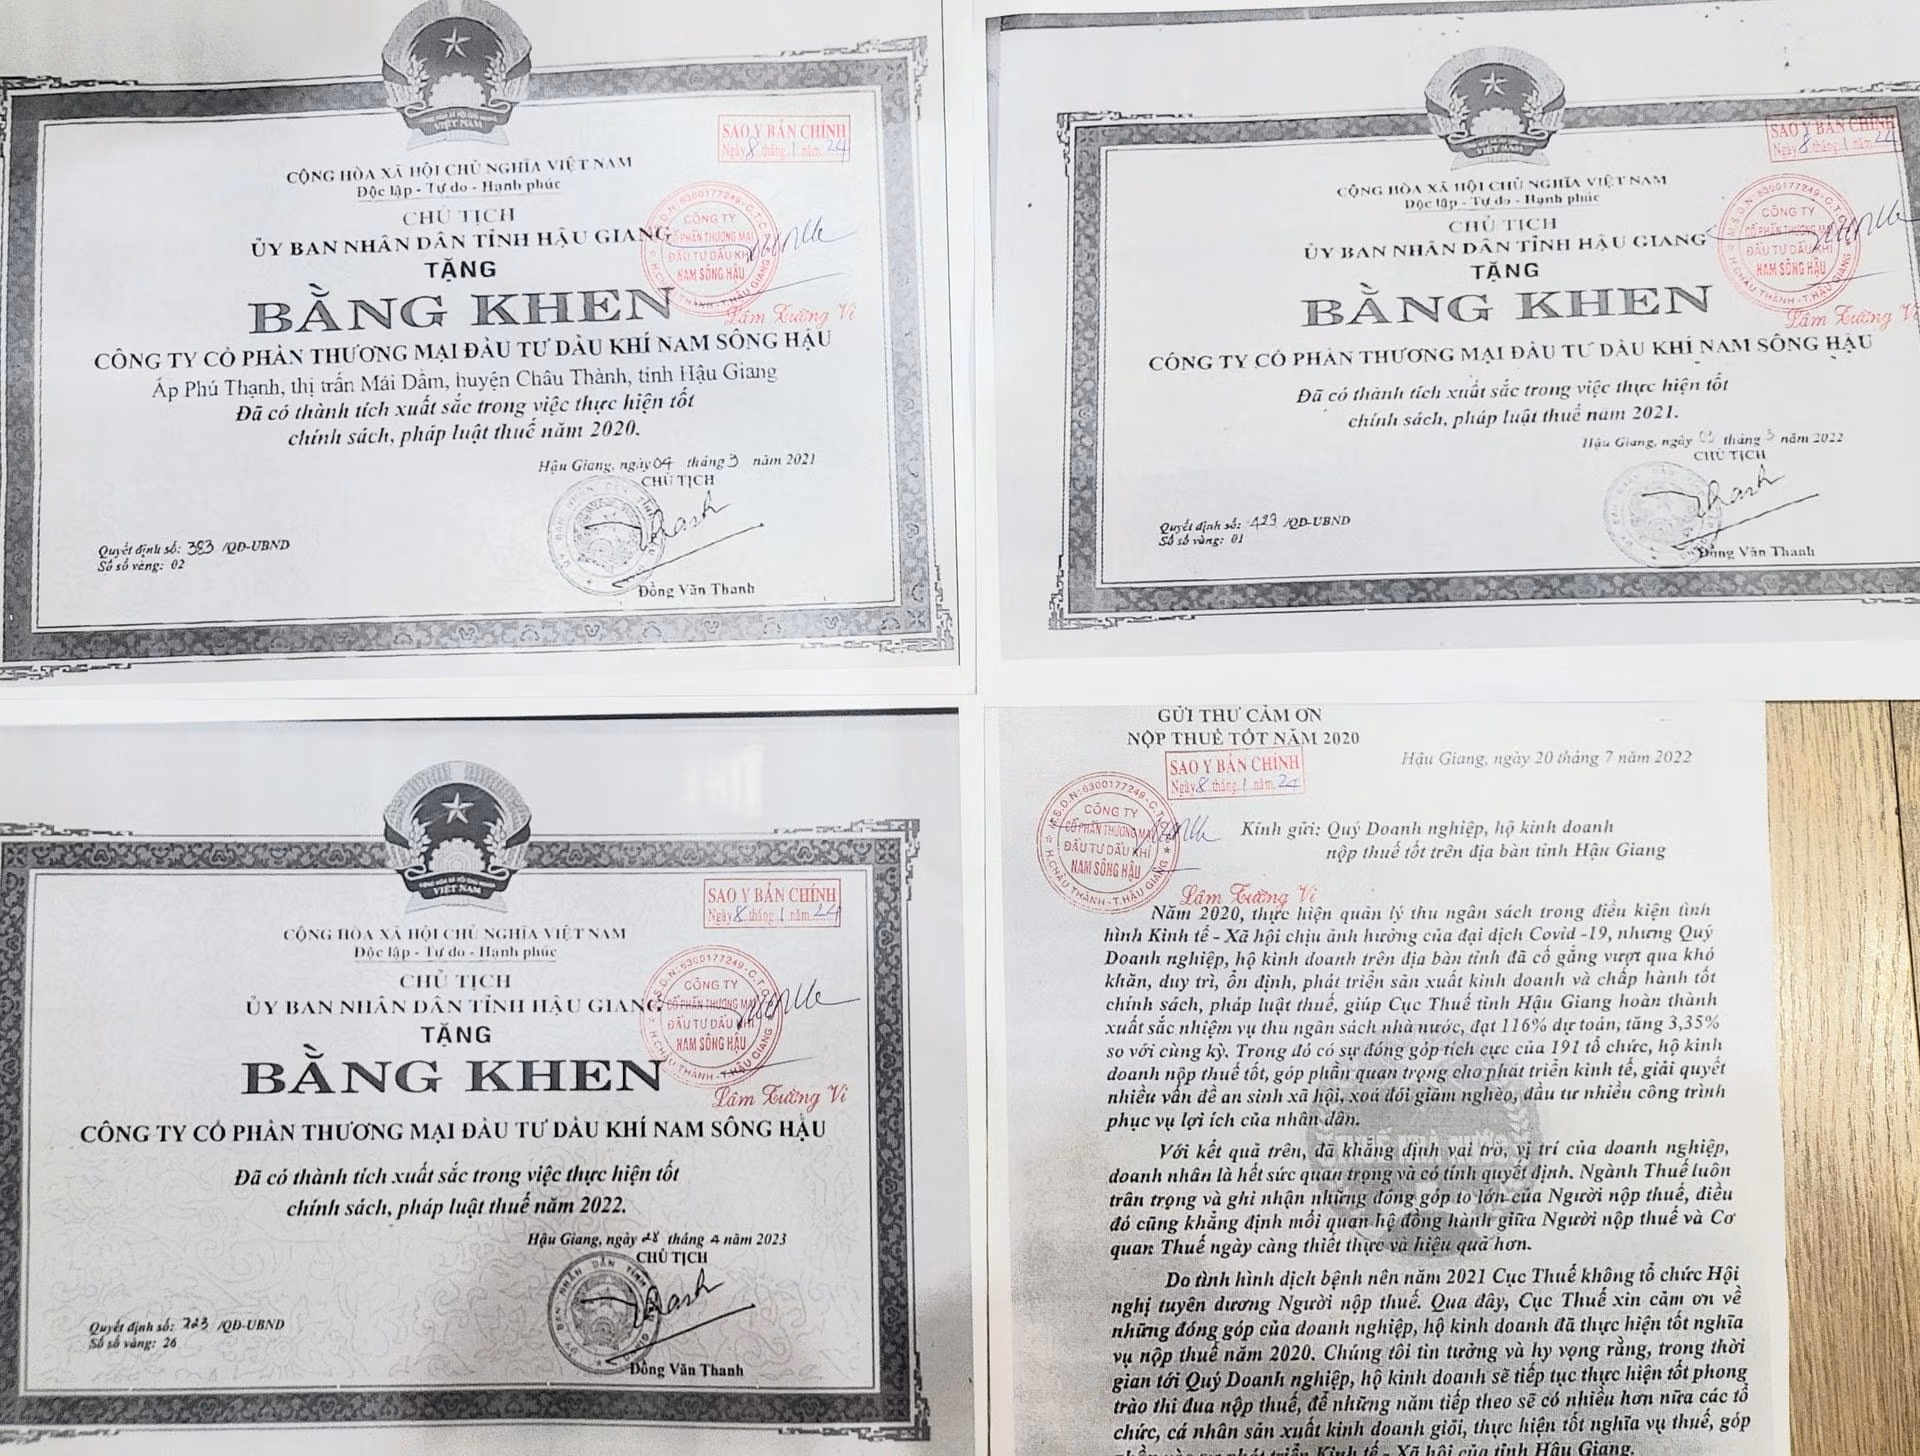 VIỆT NAM
SAO Y BẢN CHÍNH
Ngày 8 tháng 1 năm 24
CỘNG HÒA XÃ HỘI CHỦ NGHĨA VIỆT NAM
Độc lập - Tự do - Hạnh phúc
CHỦ TỊCH
ỦY BAN NHÂN DÂN TỈNH HẬU GIANG
TẶNG
BẰNG KHEN
M.S.D.N:6300177249-C.T.C.P
CÔNG TY
CỔ PHẦN THƯƠNG MẠI
ĐẦU TƯ DẦU KHÍ
NAM SÔNG HẬU
H.CHÂU THÀNH-T.HẬU GIANG
Lâm Tường Vi
CÔNG TY CỔ PHẦN THƯƠNG MẠI ĐẦU TƯ DẦU KHÍ NAM SÔNG HẬU
Ấp Phú Thạnh, thị trấn Mái Dầm, huyện Châu Thành, tỉnh Hậu Giang
Đã có thành tích xuất sắc trong việc thực hiện tốt
chính sách, pháp luật thuế năm 2020.
Hậu Giang, ngày 04 tháng 3 năm 2021
CHỦ TỊCH
Quyết định số: 383 /QĐ-UBND
Số sổ vàng: 02
Đồng Văn Thanh
VIỆT NAM
SAO Y BẢN CHÍNH
Ngày 8 tháng 1 năm 24
CỘNG HÒA XÃ HỘI CHỦ NGHĨA VIỆT NAM
Độc lập - Tự do - Hạnh phúc
CHỦ TỊCH
ỦY BAN NHÂN DÂN TỈNH HẬU GIANG
TẶNG
BẰNG KHEN
M.S.D.N:6300177249-C.T.C.P
CÔNG TY
CỔ PHẦN THƯƠNG MẠI
ĐẦU TƯ DẦU KHÍ
NAM SÔNG HẬU
H.CHÂU THÀNH-T.HẬU GIANG
Lâm Tường Vi
CÔNG TY CỔ PHẦN THƯƠNG MẠI ĐẦU TƯ DẦU KHÍ NAM SÔNG HẬU
Đã có thành tích xuất sắc trong việc thực hiện tốt
chính sách, pháp luật thuế năm 2021.
Hậu Giang, ngày 03 tháng 3 năm 2022
CHỦ TỊCH
Quyết định số: 429 /QĐ-UBND
Số sổ vàng: 01
Đồng Văn Thanh
VIỆT NAM
SAO Y BẢN CHÍNH
Ngày 8 tháng 1 năm 24
CỘNG HÒA XÃ HỘI CHỦ NGHĨA VIỆT NAM
Độc lập - Tự do - Hạnh phúc
CHỦ TỊCH
ỦY BAN NHÂN DÂN TỈNH HẬU GIANG
TẶNG
BẰNG KHEN
M.S.D.N:6300177249-C.T.C.P
CÔNG TY
CỔ PHẦN THƯƠNG MẠI
ĐẦU TƯ DẦU KHÍ
NAM SÔNG HẬU
H.CHÂU THÀNH-T.HẬU GIANG
Lâm Tường Vi
CÔNG TY CỔ PHẦN THƯƠNG MẠI ĐẦU TƯ DẦU KHÍ NAM SÔNG HẬU
Đã có thành tích xuất sắc trong việc thực hiện tốt
chính sách, pháp luật thuế năm 2022.
Hậu Giang, ngày 28 tháng 4 năm 2023
CHỦ TỊCH
Quyết định số: /QĐ-UBND
Số sổ vàng: 26
Đồng Văn Thanh
GỬI THƯ CẢM ƠN
NỘP THUẾ TỐT NĂM 2020
Hậu Giang, ngày 20 tháng 7 năm 2022
SAO Y BẢN CHÍNH
Ngày 8 tháng 1 năm 24
M.S.D.N:6300177249-C.T.C.P
CÔNG TY
CỔ PHẦN THƯƠNG MẠI
ĐẦU TƯ DẦU KHÍ
NAM SÔNG HẬU
H.CHÂU THÀNH-T.HẬU GIANG
Lâm Tường Vi
Kính gửi: Quý Doanh nghiệp, hộ kinh doanh
nộp thuế tốt trên địa bàn tỉnh Hậu Giang
Năm 2020, thực hiện quản lý thu ngân sách trong điều kiện tình
hình Kinh tế - Xã hội chịu ảnh hưởng của đại dịch Covid -19, nhưng Quý
Doanh nghiệp, hộ kinh doanh trên địa bàn tỉnh đã cố gắng vượt qua khó
khăn, duy trì, ổn định, phát triển sản xuất kinh doanh và chấp hành tốt
chính sách, pháp luật thuế, giúp Cục Thuế tỉnh Hậu Giang hoàn thành
xuất sắc nhiệm vụ thu ngân sách nhà nước, đạt 116% dự toán, tăng 3,35%
so với cùng kỳ. Trong đó có sự đóng góp tích cực của 191 tổ chức, hộ kinh
doanh nộp thuế tốt, góp phần quan trọng cho phát triển kinh tế, giải quyết
nhiều vấn đề an sinh xã hội, xoá đói giảm nghèo, đầu tư nhiều công trình
phục vụ lợi ích của nhân dân.
Với kết quả trên, đã khẳng định vai trò, vị trí của doanh nghiệp,
doanh nhân là hết sức quan trọng và có tính quyết định. Ngành Thuế luôn
trân trọng và ghi nhận những đóng góp to lớn của Người nộp thuế, điều
đó cũng khẳng định mối quan hệ đồng hành giữa Người nộp thuế và Cơ
quan Thuế ngày càng thiết thực và hiệu quả hơn.
Do tình hình dịch bệnh nên năm 2021 Cục Thuế không tổ chức Hội
nghị tuyên dương Người nộp thuế. Qua đây, Cục Thuế xin cảm ơn về
những đóng góp của doanh nghiệp, hộ kinh doanh đã thực hiện tốt nghĩa
vụ nộp thuế năm 2020. Chúng tôi tin tưởng và hy vọng rằng, trong thời
gian tới Quý Doanh nghiệp, hộ kinh doanh sẽ tiếp tục thực hiện tốt phong
trào thi đua nộp thuế, để những năm tiếp theo sẽ có nhiều hơn nữa các tổ
chức, cá nhân sản xuất kinh doanh giỏi, thực hiện tốt nghĩa vụ thuế, góp
phần vào sự phát triển Kinh tế - Xã hội của tỉnh Hậu Giang.